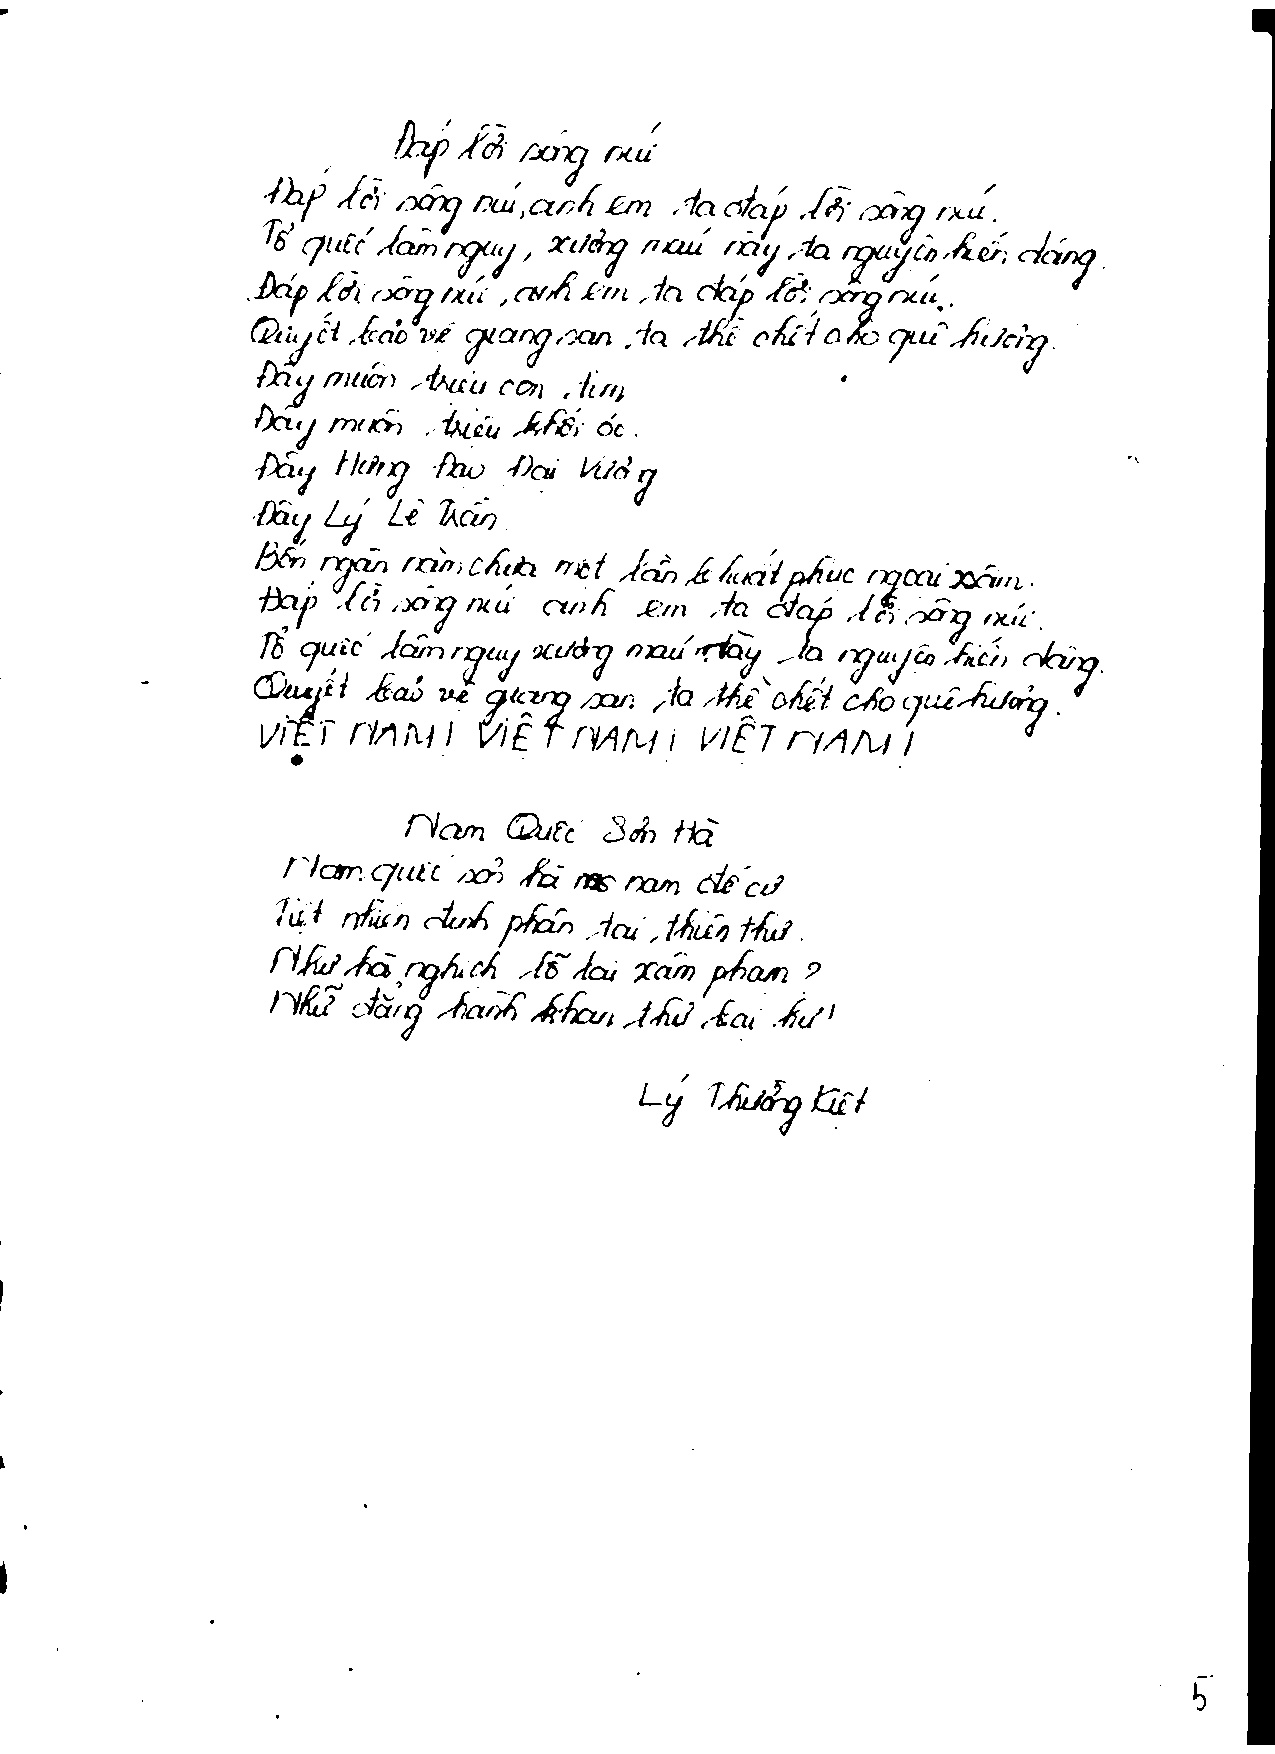 Đáp lời sông núi
Đáp lời sông núi, anh em ta đáp lời sông núi.
Tổ quốc lâm nguy, xương máu này ta nguyền hiến dâng.
Đáp lời sông núi, anh em ta đáp lời sông núi.
Quyết bảo vệ giang san ta thề chết cho quê hương.
Đây muôn triệu con tim
Đây muôn triệu khối óc.
Đây Hưng Đạo Đại Vương
Đây Lý Lê Trần
Bốn ngàn năm chưa một lần khuất phục ngoại xâm.
Đáp lời sông núi anh em ta đáp lời sông núi.
Tổ quốc lâm nguy xương máu này ta nguyền hiến dâng.
Quyết bảo vệ giang san ta thề chết cho quê hương.
VIỆT NAM! VIỆT NAM! VIỆT NAM!
Nam Quốc Sơn Hà
Nam quốc sơn hà nam đế cư
Tiệt nhiên định phận tại thiên thư.
Như hà nghịch lỗ lai xâm phạm?
Nhữ đẳng hành khan thủ bại hư!
Lý Thường Kiệt
5